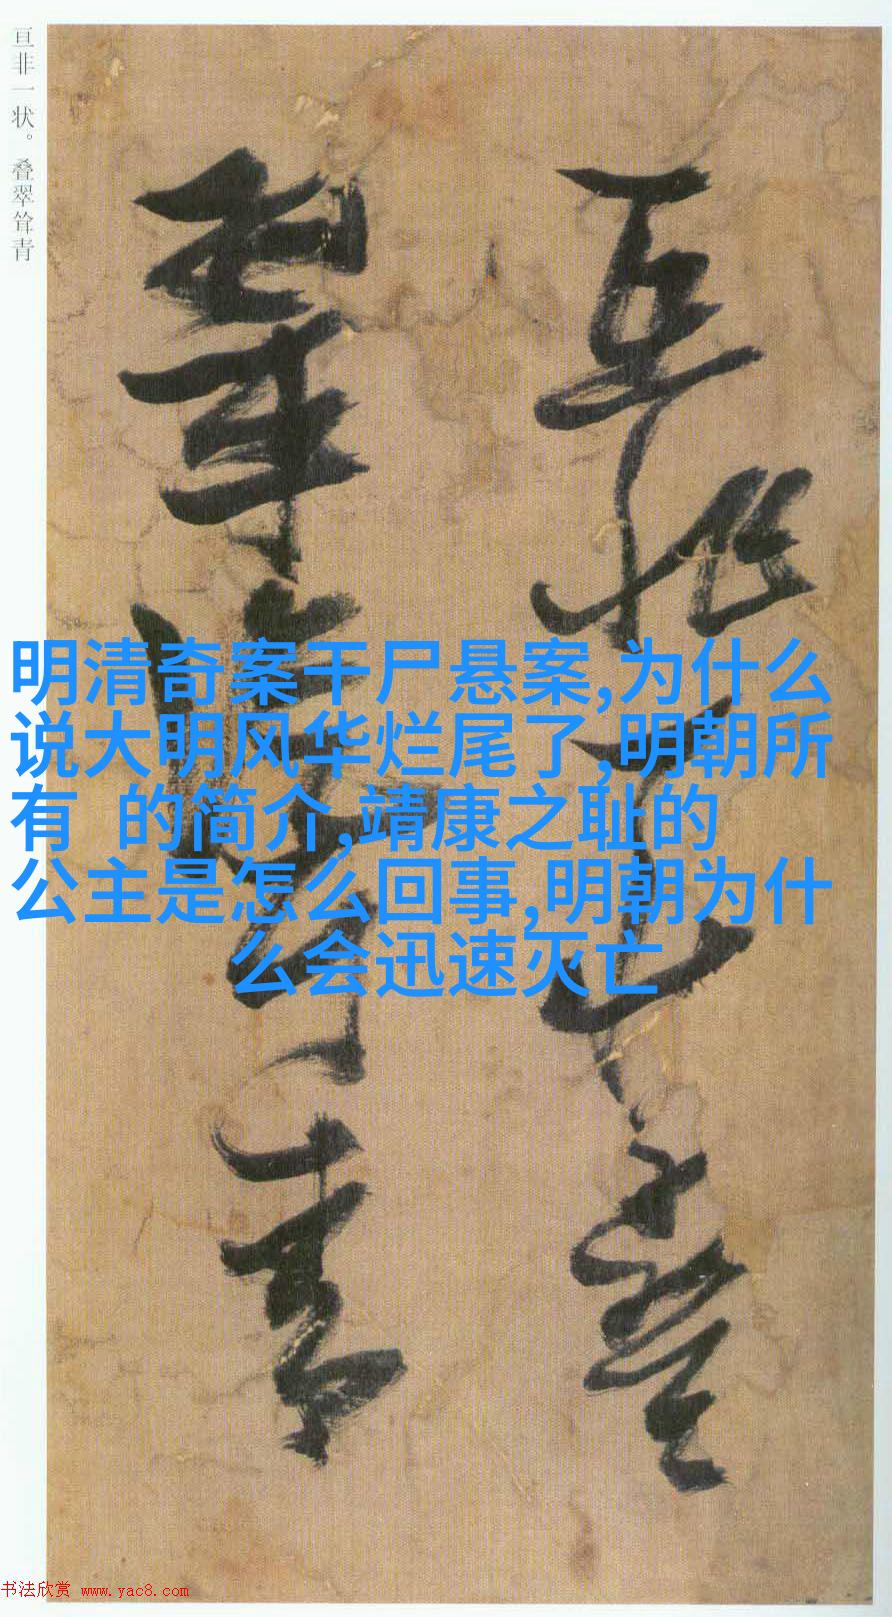 亘非一状。叠翠耸青
明清奇案干尸悬案,为什么
说大明风华烂尾了,明朝所
有 的简介,靖康之耻的
公主是怎么回事,明朝为什
么会迅速灭亡
亘非一状叠
翠耸青
书法欣赏 www.yac8.com